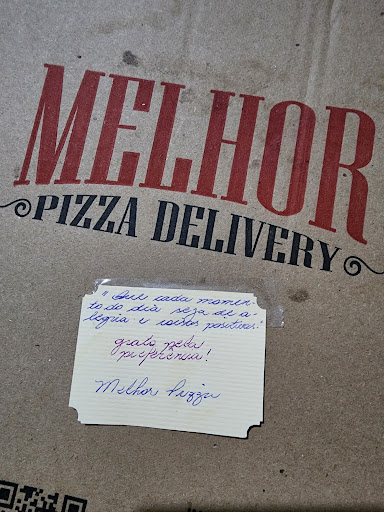 MELHOR
PIZZA DELIVERY
"Que cada momen-
to do dia seja de a-
legria e coisas positivas."
grato pela
preferência!
Melhor Pizza